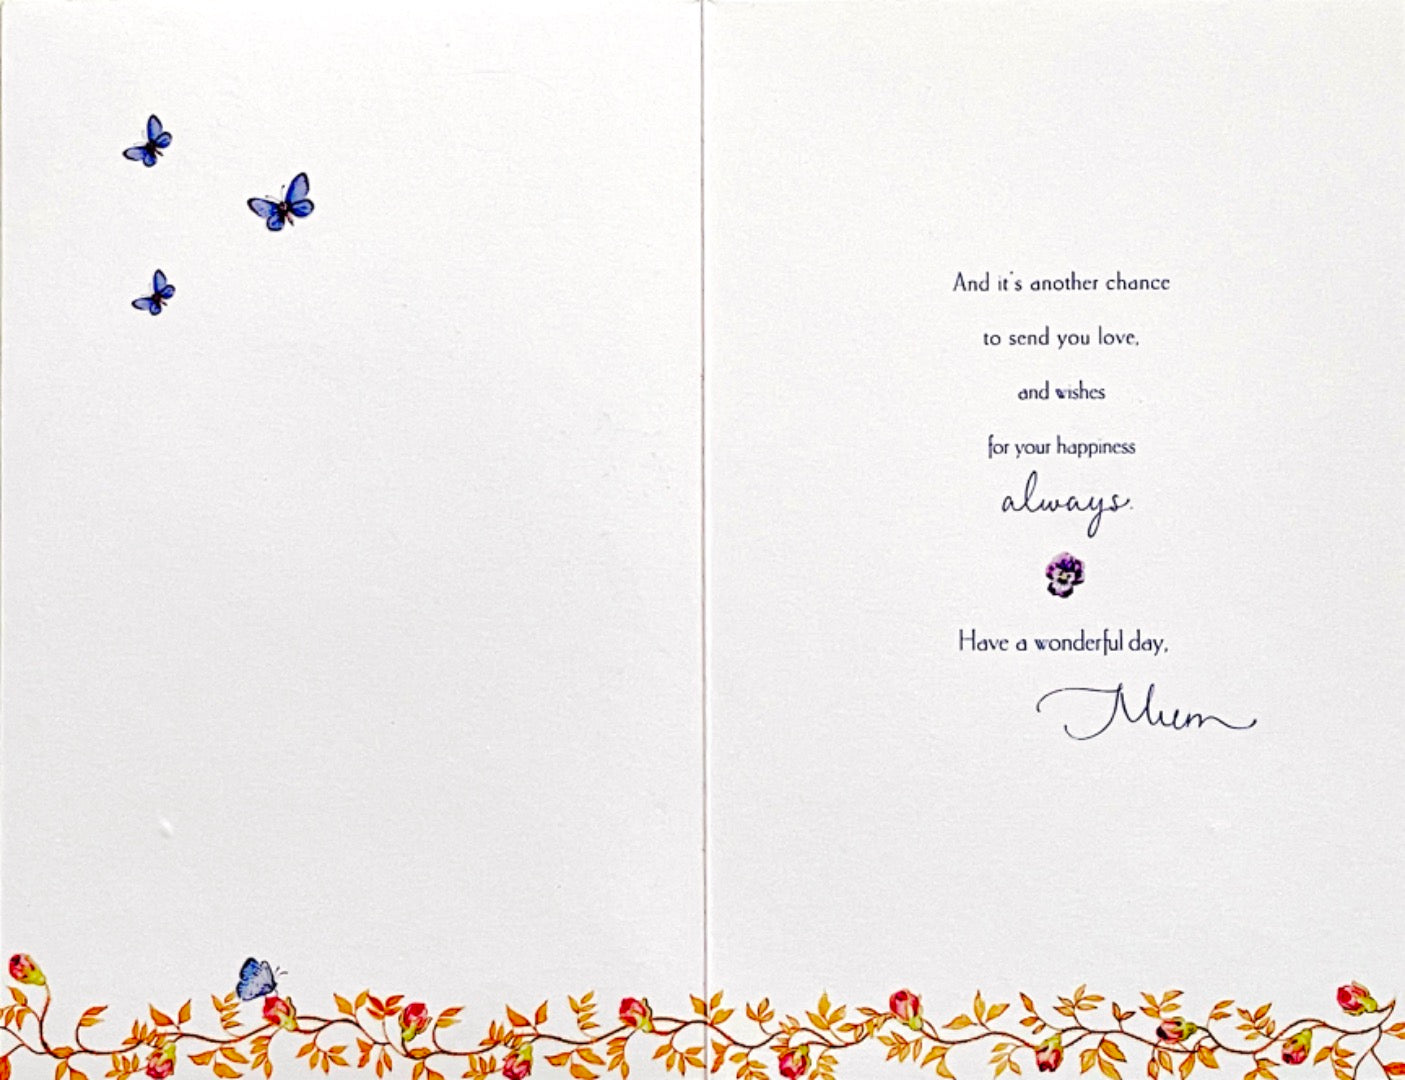 And it's another chance
to send you love,
and wishes
for your happiness
always.
Have a wonderful day,
Mum